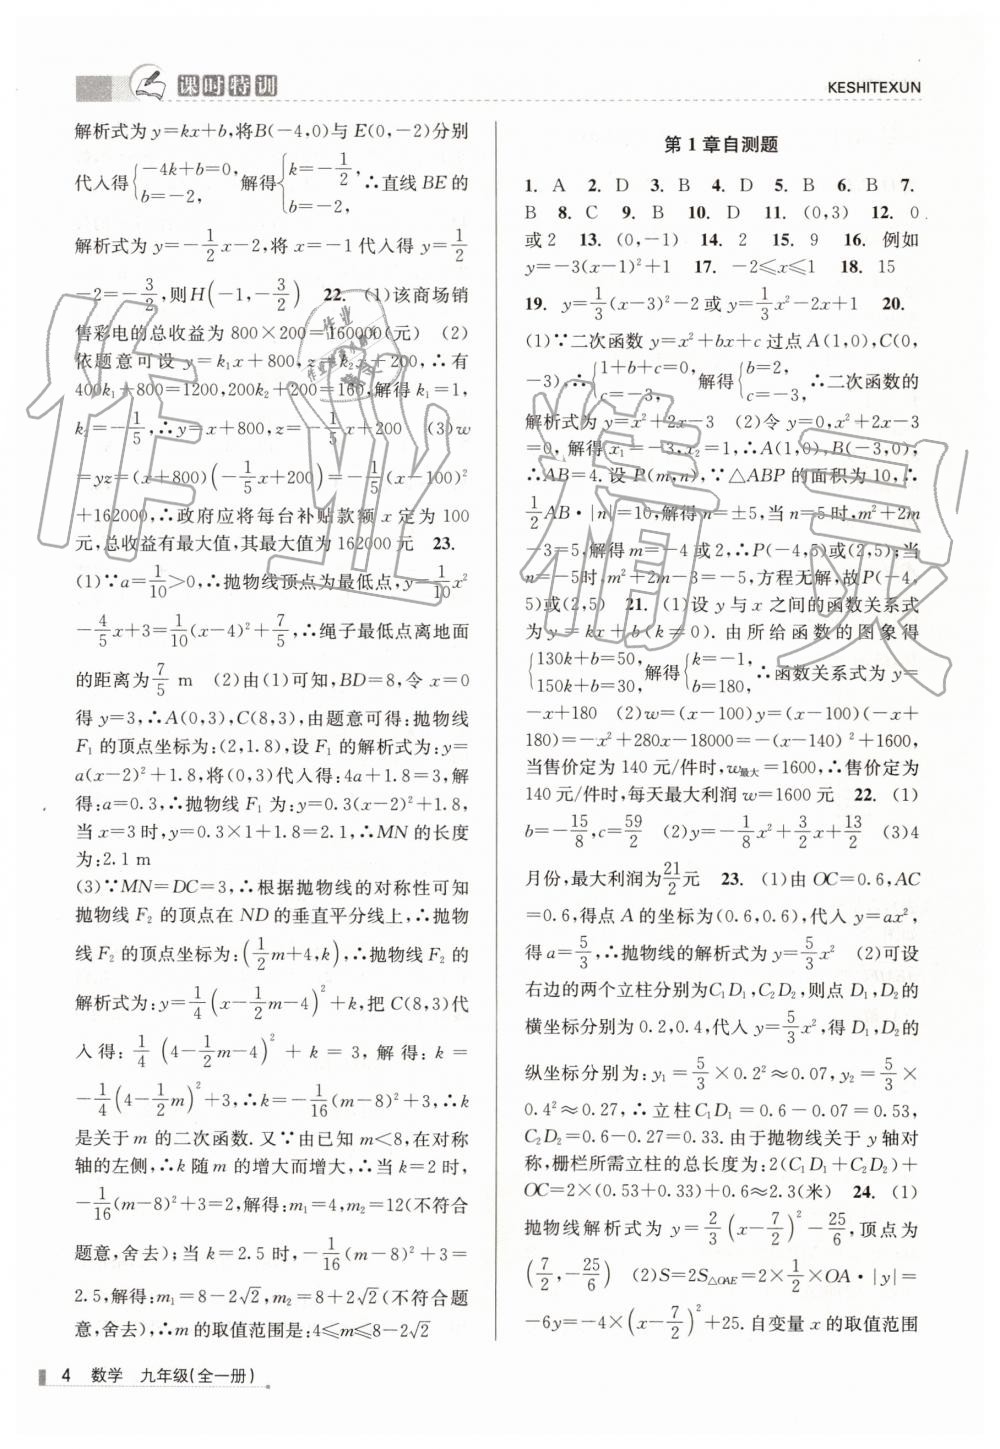 课时特训
KESHITEXUN
解析式为y=kx+b,将B(-4,0)与E(0,-2)分别
代入得{-4k+b=0, b=-2, 解得{k=-1/2 b=-2, ∴直线BE的
解析式为y=-1/2x-2,将x=-1代入得y=1/2
-2=-3/2,则H(-1,-3/2) 22. (1)该商场销
售彩电的总收益为800×200=160000(元) (2)
依题意可设y=k₁x+800,z=k₂x+200,∴有
400k₁+800=1200,200k₂+200=160,解得k₁=1,
k₂=-1/5,∴y=x+800,z=-1/5x+200 (3)w
=yz=(x+800)(-1/5x+200)=-1/5(x-100)²
+162000,∴政府应将每台补贴款额x定为100
元,总收益有最大值,其最大值为162000元 23.
(1)∵a=1/10>0,∴抛物线顶点为最低点,y=1/10x²
-4/5x+3=1/10(x-4)²+7/5,∴绳子最低点离地面
的距离为7/5 m (2)由(1)可知,BD=8,令x=0
得y=3,∴A(0,3),C(8,3),由题意可得:抛物线
F₁的顶点坐标为:(2,1.8),设F₁的解析式为:y=
a(x-2)²+1.8,将(0,3)代入得:4a+1.8=3,解
得:a=0.3,∴抛物线F₁为:y=0.3(x-2)²+1.8,
当x=3时,y=0.3×1+1.8=2.1,∴MN的长度
为:2.1 m
(3)∵MN=DC=3,∴根据抛物线的对称性可知
抛物线F₂的顶点在ND的垂直平分线上,∴抛物
线F₂的顶点坐标为:(1/2m+4,k),∴抛物线F₂的
解析式为:y=1/4(x-1/2m-4)²+k,把C(8,3)代
入得:1/4(4-1/2m-4)²+k=3,解得:k=
-1/4(4-1/2m)²+3,∴k=-1/16(m-8)²+3,∴k
是关于m的二次函数.又∵由已知m<8,在对称
轴的左侧,∴k随m的增大而增大,∴当k=2时,
-1/16(m-8)²+3=2,解得:m₁=4,m₂=12(不符合
题意,舍去);当k=2.5时,-1/16(m-8)²+3=
2.5,解得:m₁=8-2√2,m₂=8+2√2(不符合题
意,舍去),∴m的取值范围是:4≤m≤8-2√2
第1章自测题
1. A 2. D 3. B 4. D 5. B 6. B 7.
B 8. C 9. B 10. D 11. (0,3) 12. 0
或2 13. (0,-1) 14. 2 15. 9 16. 例如
y=-3(x-1)²+1 17. -2≤x≤1 18. 15
19. y=1/3(x-3)²-2或y=1/3x²-2x+1 20.
(1)∵二次函数y=x²+bx+c过点A(1,0),C(0,
-3),∴{1+b+c=0, c=-3, 解得{b=2, c=-3, ∴二次函数的
解析式为y=x²+2x-3 (2)令y=0,x²+2x-3
=0,解得x₁=-3,x₂=1,∴A(1,0),B(-3,0);
∴AB=4.设P(m,n),∵△ABP的面积为10,∴
1/2AB·|n|=10,解得n=±5,当n=5时,m²+2m
-3=5,解得m=-4或2,∴P(-4,5)或(2,5);当
n=-5时,m²+2m-3=-5,方程无解,故P(-4,
5)或(2,5) 21. (1)设y与x之间的函数关系式
为y=kx+b(k≠0).由所给函数的图象得
{130k+b=50, 150k+b=30, 解得{k=-1, b=180, ∴函数关系式为y=
-x+180 (2)w=(x-100)y=(x-100)(-x+
180)=-x²+280x-18000=-(x-140)²+1600,
当售价定为140元/件时,w最大=1600,∴售价定为
140元/件时,每天最大利润w=1600元 22. (1)
b=-15/8,c=59/2 (2)y=-1/8x²+3/2x+13/2 (3)4
月份,最大利润为21/2元 23. (1)由OC=0.6,AC
=0.6,得点A的坐标为(0.6,0.6),代入y=ax²,
得a=5/3,∴抛物线的解析式为y=5/3x² (2)可设
右边的两个立柱分别为C₁D₁,C₂D₂,则点D₁,D₂的
横坐标分别为0.2,0.4,代入y=5/3x²,得D₁,D₂的
纵坐标分别为:y₁=5/3×0.2²≈0.07,y₂=5/3×
0.4²≈0.27,∴立柱C₁D₁=0.6-0.07=0.53,
C₂D₂=0.6-0.27=0.33.由于抛物线关于y轴对
称,栅栏所需立柱的总长度为:2(C₁D₁+C₂D₂)+
OC=2×(0.53+0.33)+0.6≈2.3(米) 24. (1)
抛物线解析式为y=2/3(x-7/2)²-25/6,顶点为
(7/2,-25/6) (2)S=2S△OAE=2×1/2×OA·|y|=
-6y=-4×(x-7/2)²+25.自变量x的取值范围
4 数学 九年级(全一册)
作业精灵